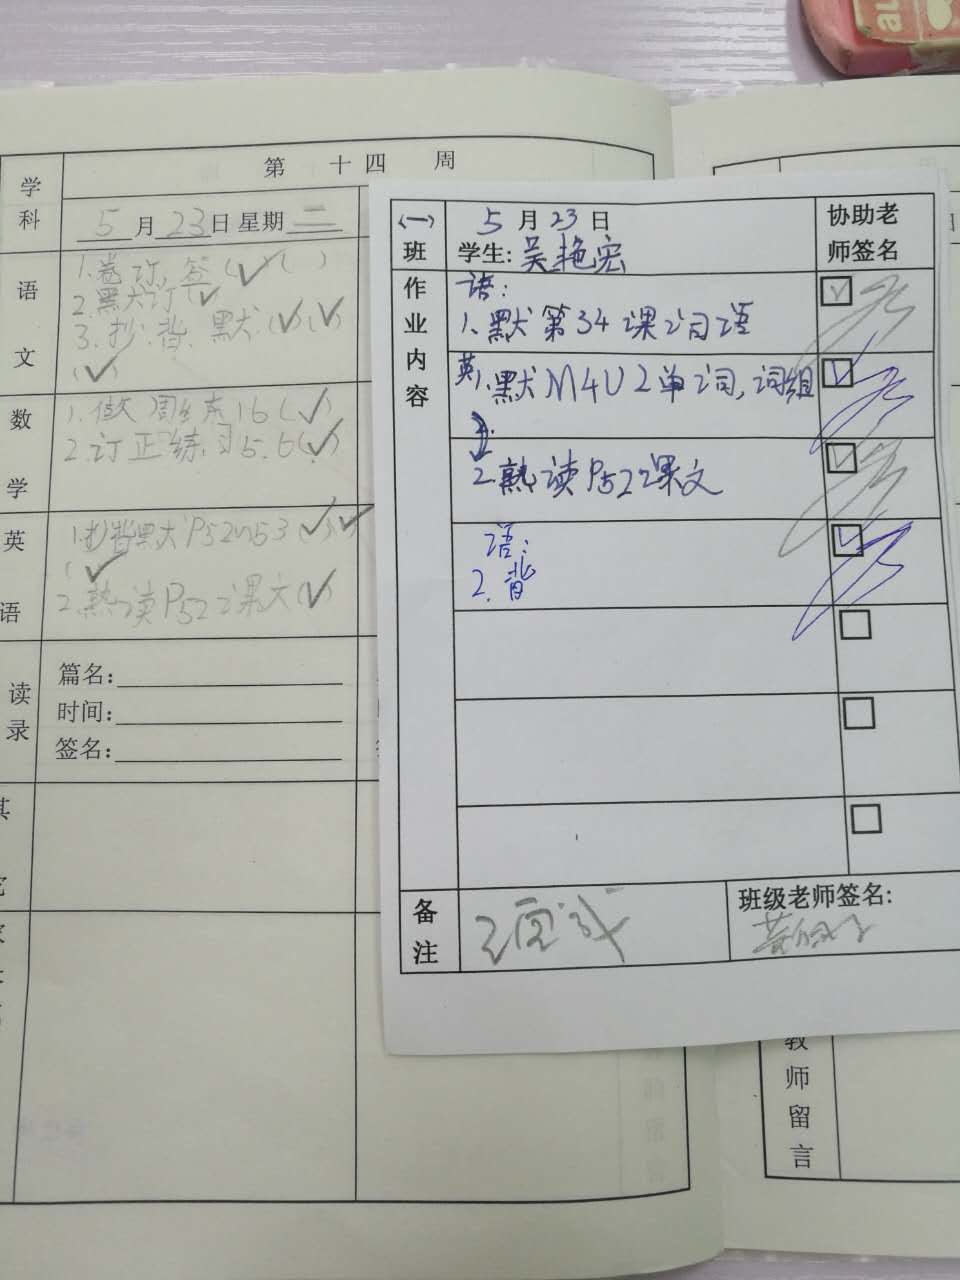 学科
第 十四 周
5月23日 星期二
语文
1.卷订,签(✓)( )
2.默大订(✓
3.抄.背.默(✓)(✓)
(✓)
数学
1.做周练16(✓)
2.订正练习5.6(✓)
英语
1.抄背默P52~53(✓)(✓)
(✓
2.熟读P52课文(✓)
读录
篇名:
时间:
签名:
(一)班
5月23日
学生:吴艳宏
协助老师签名
作业内容
语:
1.默第34课词语
英1.默M4U2单词,词组
2.熟读P52课文
语:
2.背
备注
已完成
班级老师签名:
教师留言